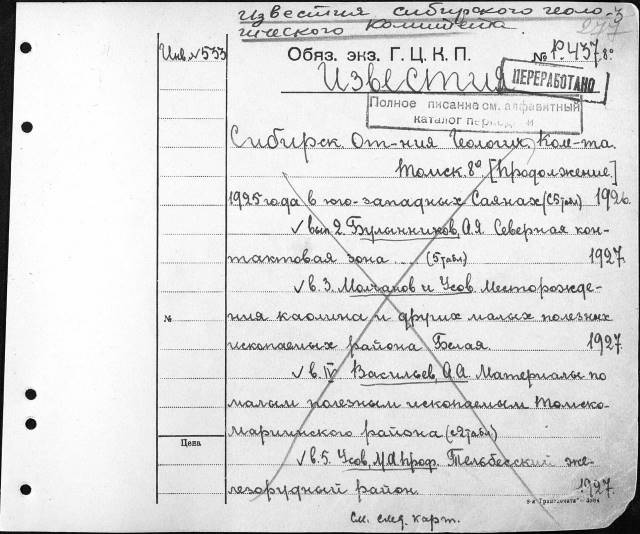 Известия сибирского геоло-
гического Комитета.
Инв. № 533
Обяз. экз. Г. Ц. К. П.
№ Р.437 8°
Известия
ПЕРЕРАБОТАНО
Полное писание см. алфавитный
каталог
Сибирск. От-ния Геологич. Ком-та.
Томск. 8° [Продолжение.]
1925 года в юго-западных Саянах (С 5 табл) 1926.
✓ вып 2. Булынников, А.Я. Северная кон-
тактовая зона .... (5 табл) 1927.
✓ в. 3. Молчанов и Усов. Месторожде-
№
ния каолина и других малых полезных
ископаемых района Белая. 1927.
✓ в. IV Васильев, А.А. Материалы по
малым полезным ископаемым Томско-
Цена
мариинского района (с 2 табл)
✓ в. 5. Усов, М.А. проф. Тельбесский же-
лезорудный район. 1927.
См. след. карт.